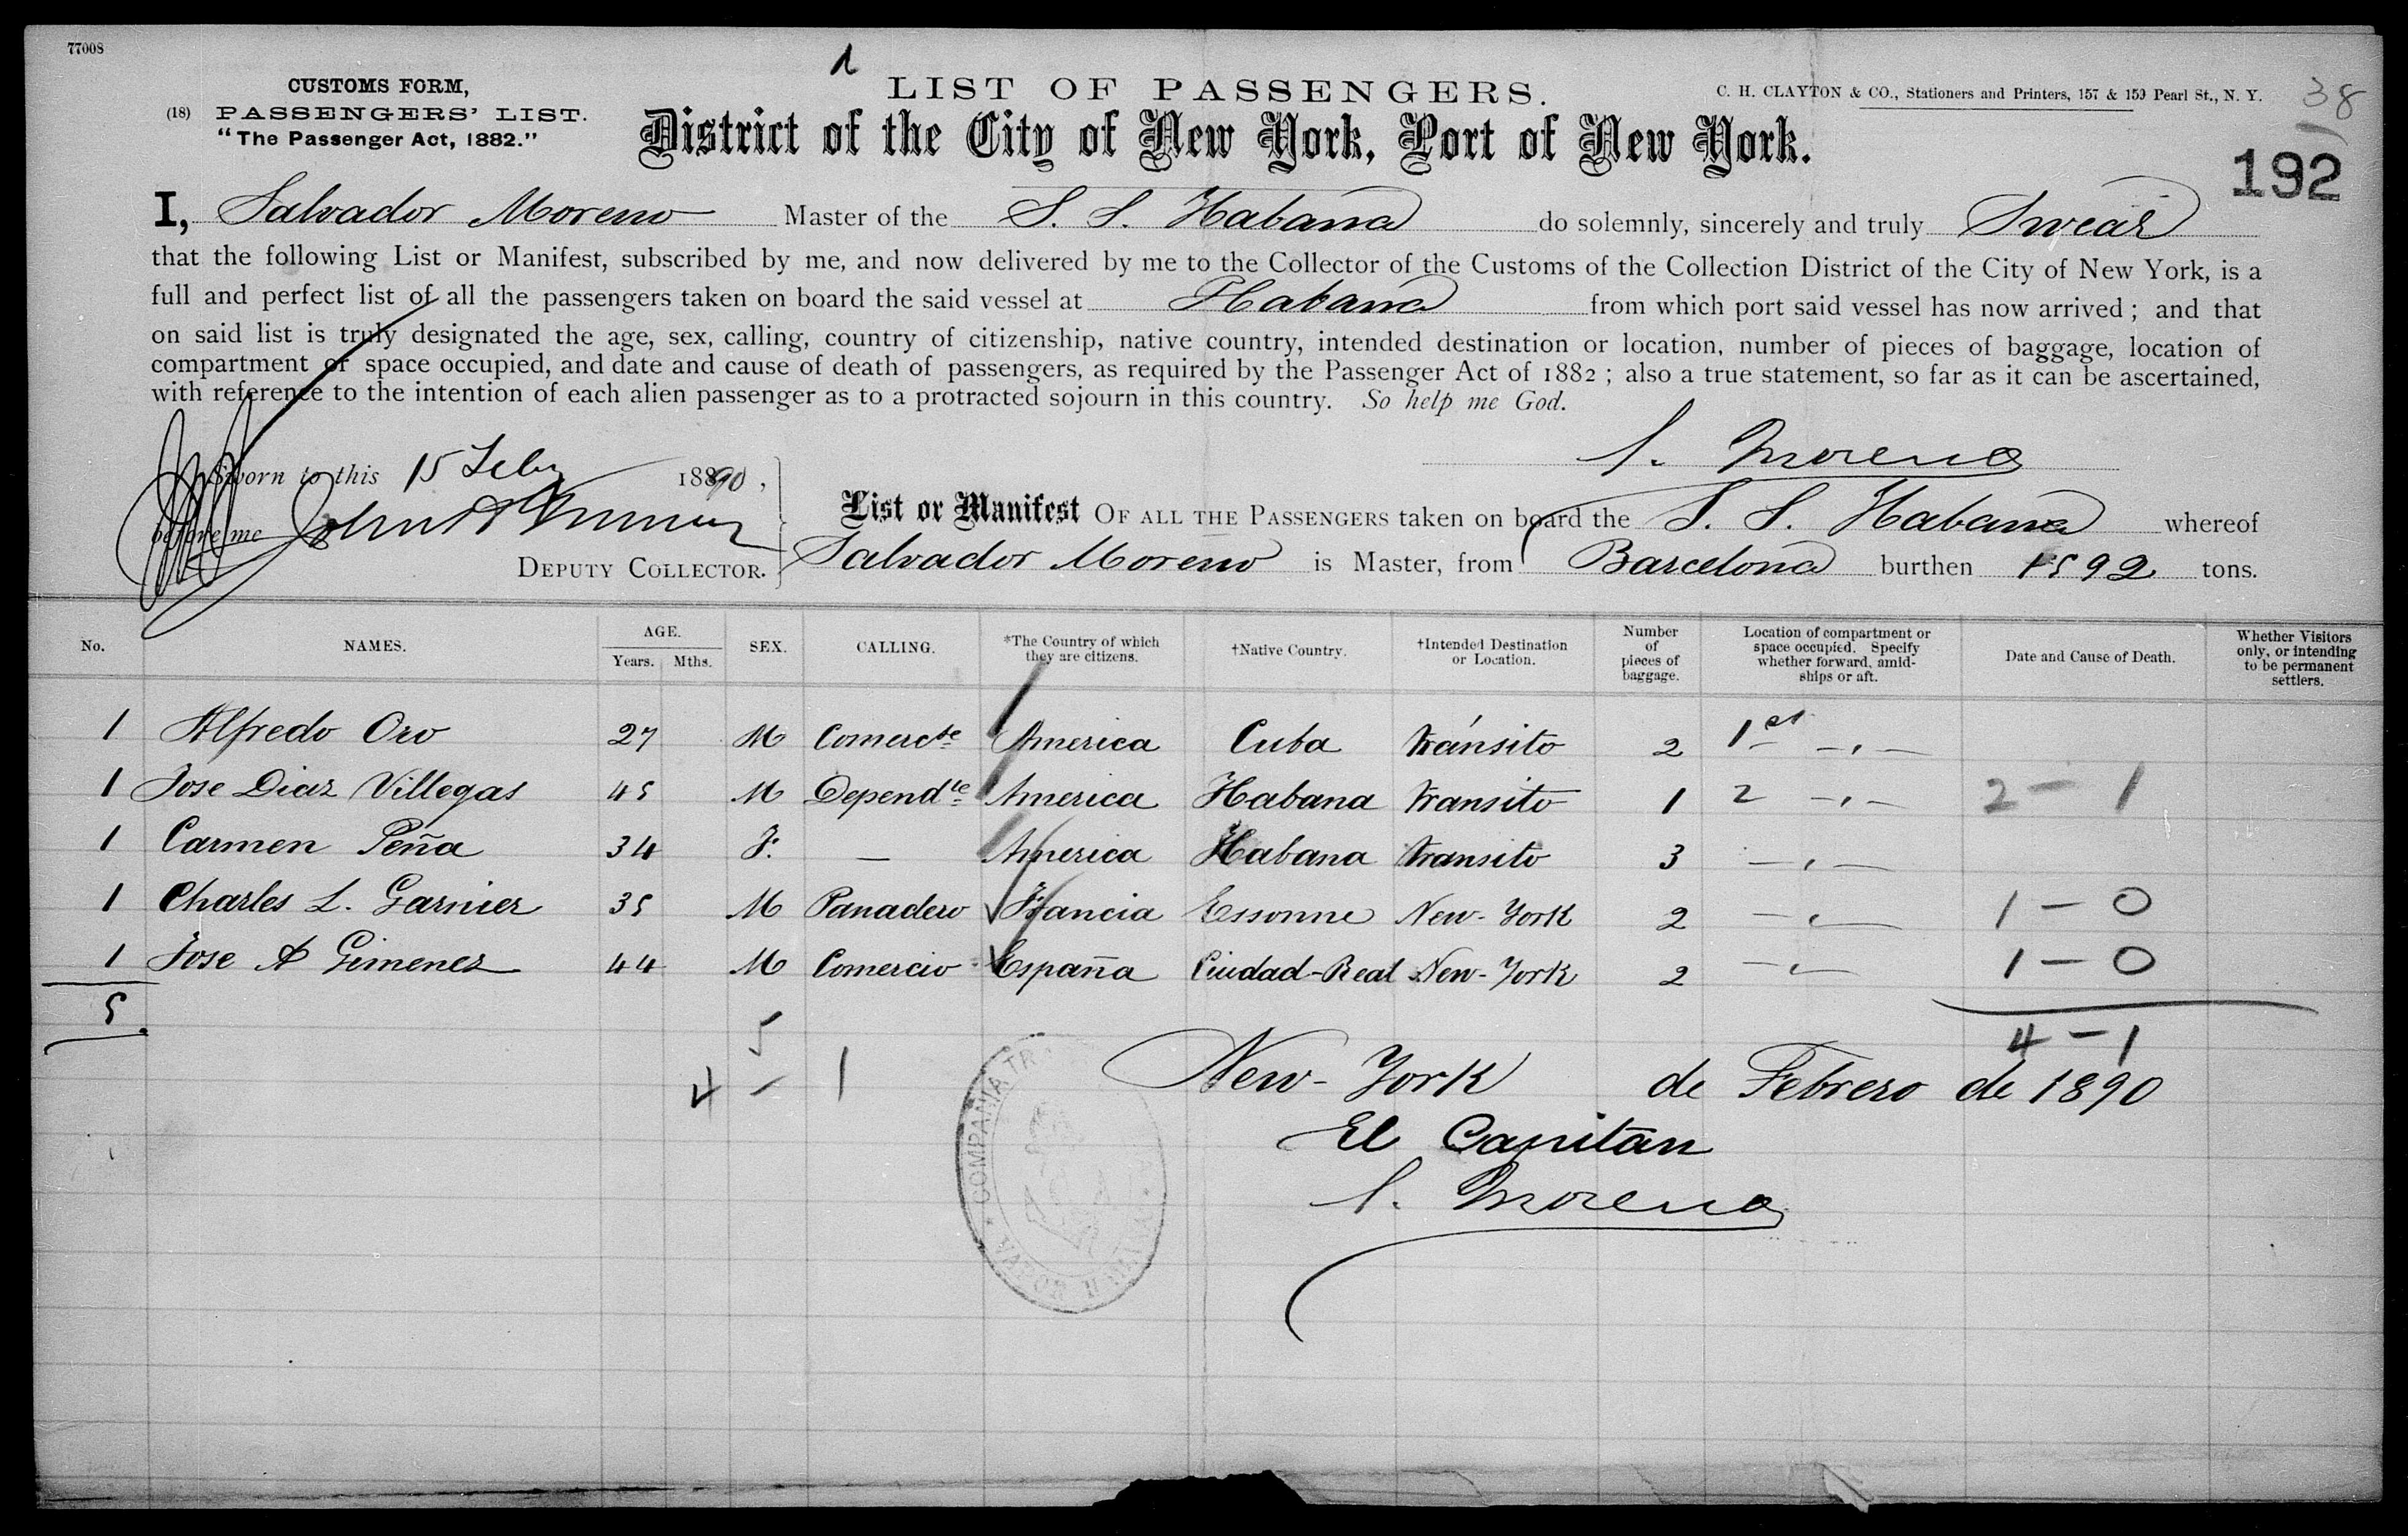 77008
1
CUSTOMS FORM,
(18) PASSENGERS' LIST.
"The Passenger Act, 1882."
LIST OF PASSENGERS.
C. H. CLAYTON & CO., Stationers and Printers, 157 & 159 Pearl St., N. Y.
38
District of the City of New York, Port of New York.
192
I, Salvador Moreno Master of the S. S. Habana do solemnly, sincerely and truly Swear
that the following List or Manifest, subscribed by me, and now delivered by me to the Collector of the Customs of the Collection District of the City of New York, is a
full and perfect list of all the passengers taken on board the said vessel at Habana from which port said vessel has now arrived; and that
on said list is truly designated the age, sex, calling, country of citizenship, native country, intended destination or location, number of pieces of baggage, location of
compartment or space occupied, and date and cause of death of passengers, as required by the Passenger Act of 1882; also a true statement, so far as it can be ascertained,
with reference to the intention of each alien passenger as to a protracted sojourn in this country. So help me God.
S. Moreno
Sworn to this 15 Feby 1890,
before me John
DEPUTY COLLECTOR.
List or Manifest OF ALL THE PASSENGERS taken on board the S. S. Habana whereof
Salvador Moreno is Master, from Barcelona burthen 1592 tons.
No. NAMES. AGE. Years. Mths. SEX. CALLING. *The Country of which they are citizens. †Native Country. †Intended Destination or Location. Number of pieces of baggage. Location of compartment or space occupied. Specify whether forward, amidships or aft. Date and Cause of Death. Whether Visitors only, or intending to be permanent settlers.
1 Alfredo Oro 27 M Comercte America Cuba tránsito 2 1st -,-
1 Jose Diaz Villegas 45 M Dependte America Habana transito 1 2 -,- 2 - 1
1 Carmen Peña 34 F. — America Habana transito 3 -,-
1 Charles L. Garnier 35 M Panadero Francia Essonne New-York 2 -,- 1 - 0
1 Jose A Gimenez 44 M Comercio España Ciudad-Real New-York 2 -,- 1 - 0
5
4 - 1
5
4 - 1
New-York de Febrero de 1890
El Capitan
S. Moreno
COMPAÑIA TR
VAPOR HABANA